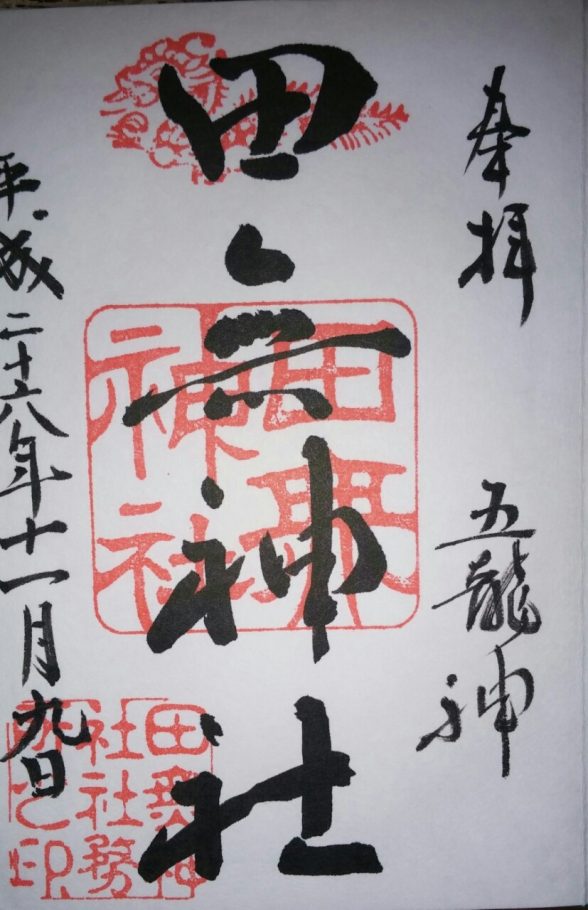 奉拝
五龍神
田無神社
田無神社
平成二十六年十一月九日
田無神
社社務
所之印